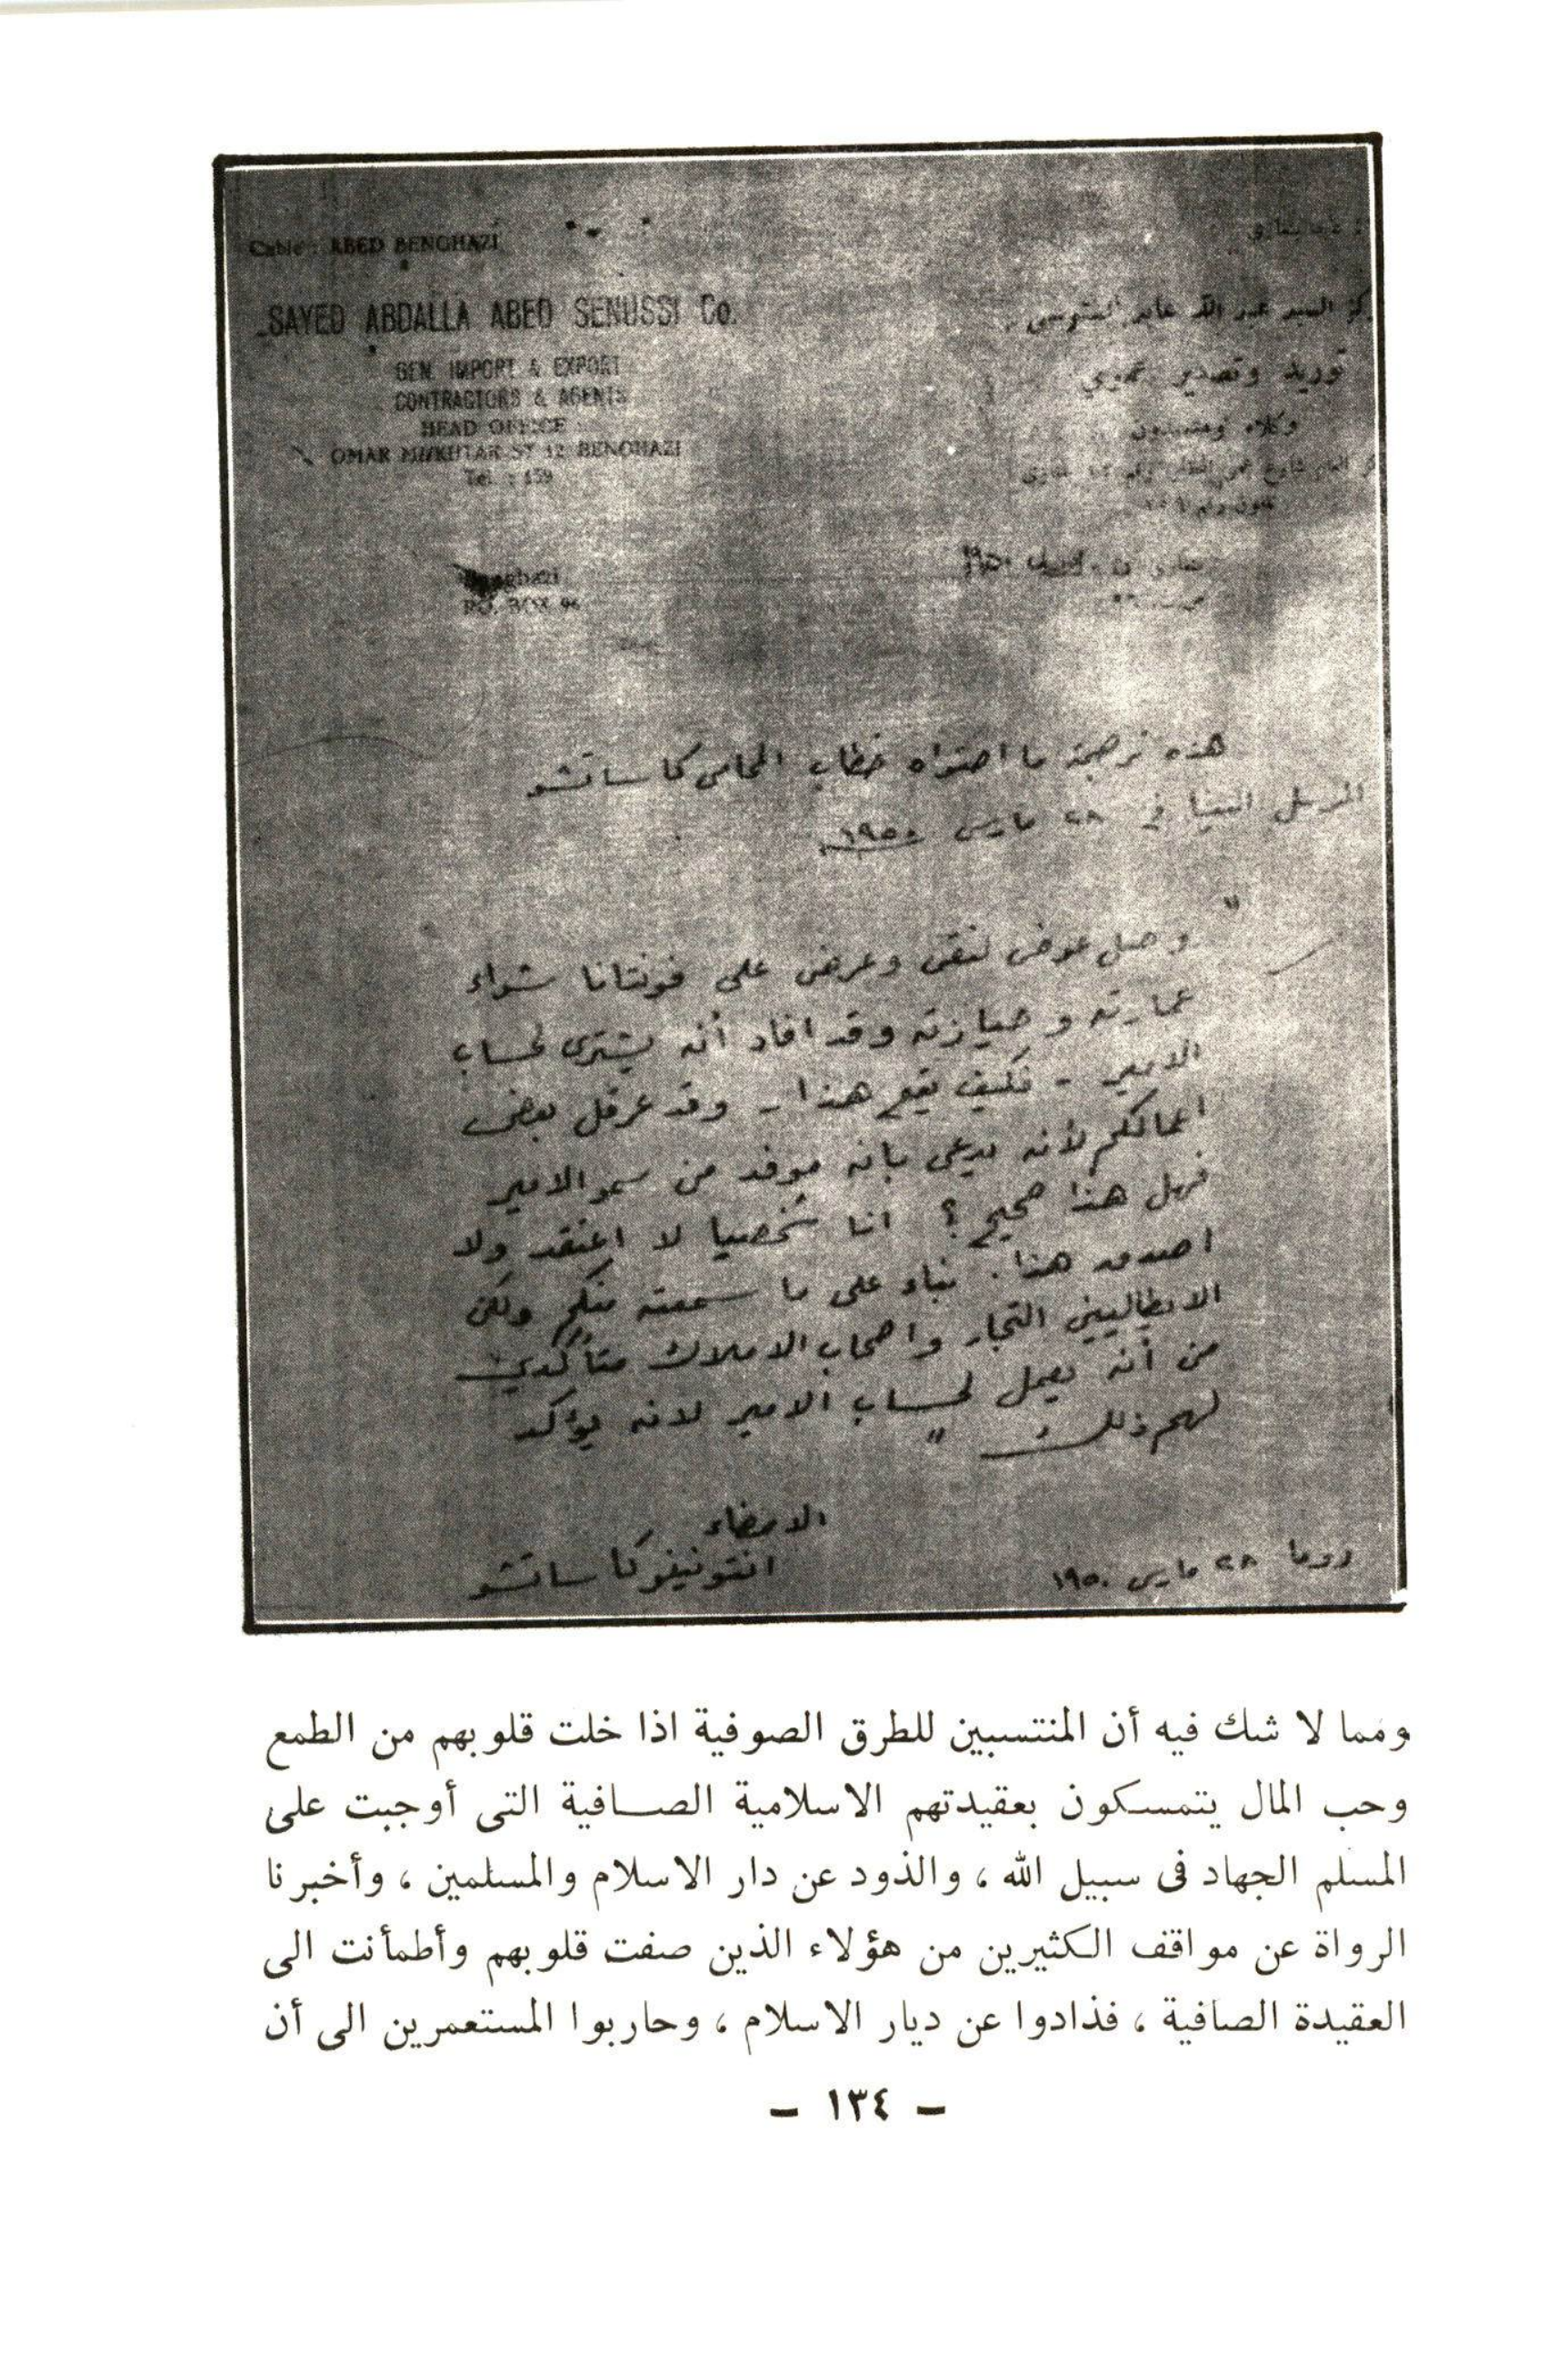 Cable : ABED BENGHAZI
SAYED ABDALLA ABED SENUSSI Co.
GEN. IMPORT & EXPORT
CONTRACTORS & AGENTS
HEAD OFFICE
OMAR MUKHTAR ST 12 BENGHAZI
Tel : 159
Benghazi
P.O. BOX 96
السيد عبد الله عابد السنوسي
توريد وتصدير عمومي
وكلاء ومتعهدون
هذه ترجمة ما احتواه خطاب المحامى كاساتشو
المرسل الينا في ٢٨ مارس ١٩٥٠
"
وصل عوض لنقى وعرض على فونتانا شراء
عمارته وحيازته وقد افاد أنه يشترى لحساب
الامير - فكيف يقع هذا - وقد عرقل بعض
اعمالكم لأنه يدعى بانه موفد من سمو الامير
فهل هذا صحيح ؟ انا شخصيا لا اعتقد ولا
اصدق هذا . بناء على ما سمعته منكم ولكن
الايطاليين التجار واصحاب الاملاك متأكدين
من أنه يعمل لحساب الامير لانه يؤكد
لهم ذلك "
الامضاء
انتونينو كاساتشو
روما ٢٨ مارس ١٩٥٠
ومما لا شك فيه أن المنتسبين للطرق الصوفية اذا خلت قلوبهم من الطمع
وحب المال يتمسكون بعقيدتهم الاسلامية الصافية التى أوجبت على
المسلم الجهاد فى سبيل الله ، والذود عن دار الاسلام والمسلمين ، وأخبرنا
الرواة عن مواقف الكثيرين من هؤلاء الذين صفت قلوبهم وأطمأنت الى
العقيدة الصافية ، فذادوا عن ديار الاسلام ، وحاربوا المستعمرين الى أن
- ١٣٤ -